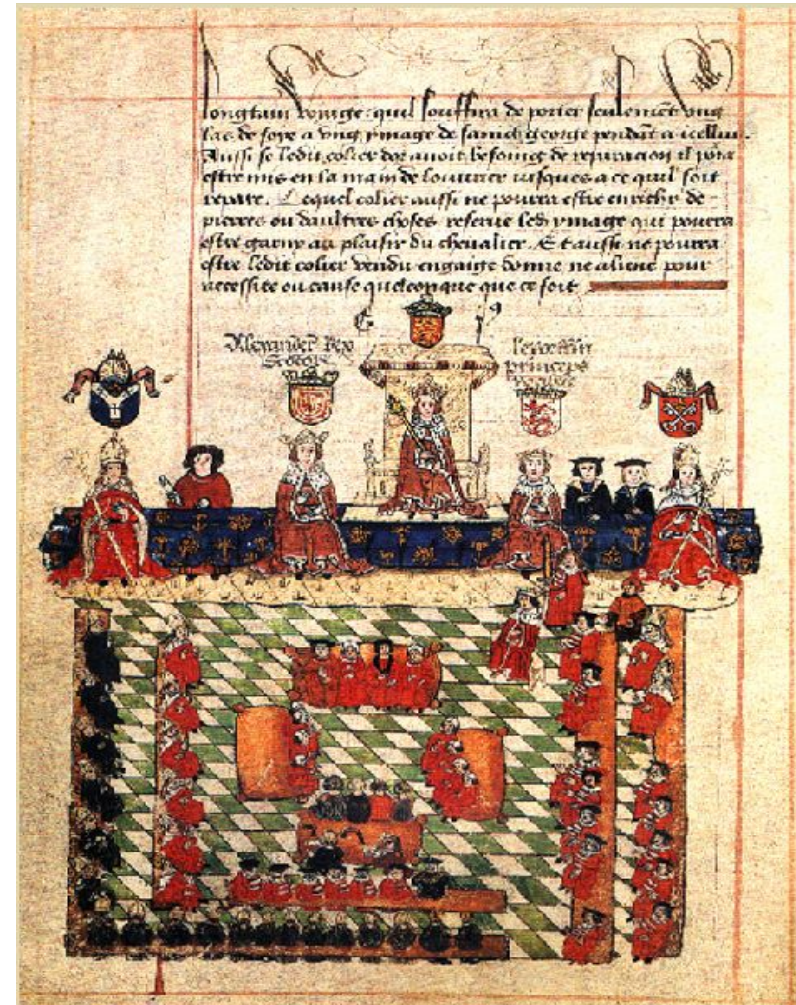 longtain voyage: quil souffira de porter seulement ung
las de soye a ung ymage de sainct george pendãt a icelluy.
Aussi se ledit colier dor avoit besoing de reparacion il porra
estre mis en la main de louvrier jusques a ce quil soit
repare. Lequel colier aussi ne pourra estre enrichy de
pierres ou daultres choses reserve led ymage qui pourra
estre garny au plaisir du chevalier. Et aussi ne pourra
estre ledit colier vendu engaige donne ne aliene pour
necessite ou cause quelconque que ce soit
Alexander Rex
princeps